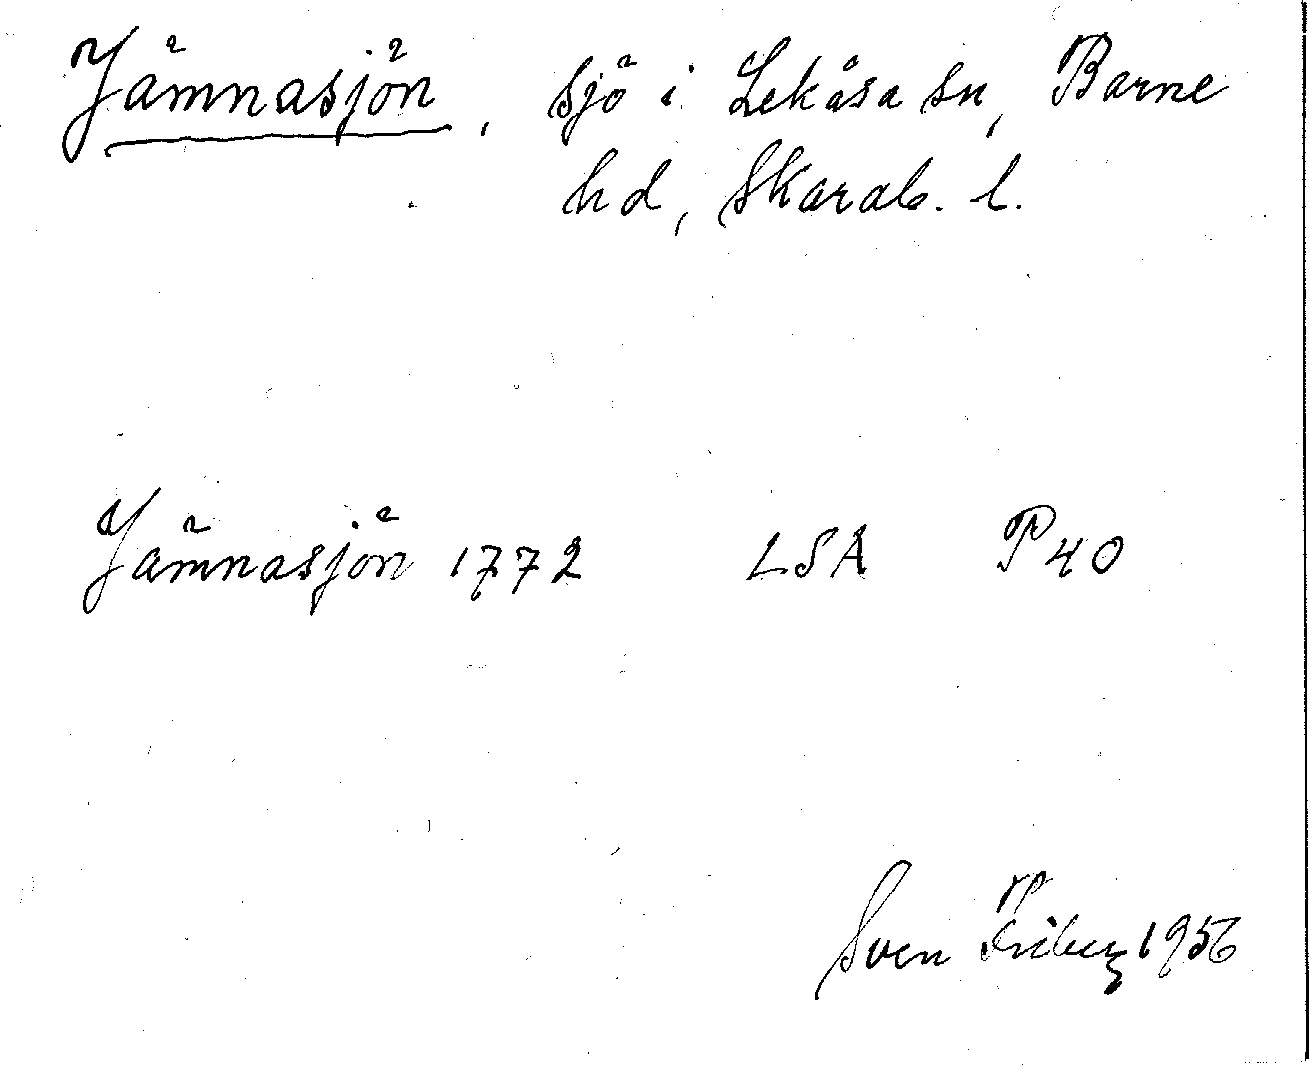 Jämnasjön, sjö i Lekåsa sn, Barne
hd, Skarab. l.
Jämnasjön 1772 LSA P40
Sven Friberg 1956